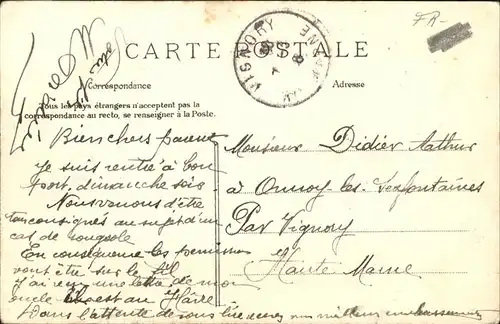 FR-
CARTE POSTALE
VIGNORY
Correspondance
Adresse
Tous les pays étrangers n'acceptent pas la
correspondance au recto, se renseigner à la Poste.
Bien chers parents
Je suis rentré à bon
port, dimanche soir.
Nous venons d'être
consignés au sujet d'un
cas de rougeole
En conséquence les permissions
vont être sur le fil
J'ai reçu une lettre de mon
oncle est au Hâvre
Dans l'attente de vous lire recevez mes meilleurs embrassements
Monsieur Didier Arthur
à Ormoy-les-Sexfontaines
Par Vignory
Haute Marne